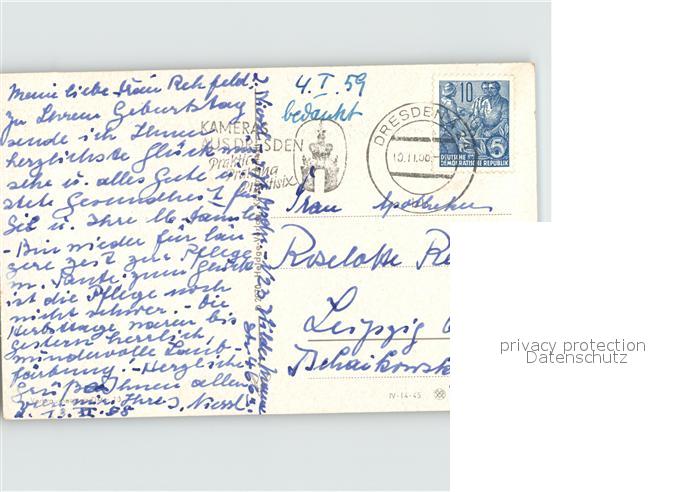 Meine liebe Frau Rehfeld!
Zu Ihrem Geburtstag
sende ich Ihnen
herzlichste Glückwün
sche u. alles Gute u.
stete Gesundheit für
Sie u. Ihre lb. Familie
- Bin wieder für län
gere Zeit zur Pflege
m. Tante zum
ist die Pflege noch
nicht schwer. - Die
Herbsttage waren bis
gestern herrlich,
wundervolle Laub-
färbung. - Herzliche
Grüße Ihnen allen
von Ihres
13. XI. 58
4. I. 59
bedankt
KAMERAS
AUS DRESDEN
Praktica
Praktina
Praktisix
DRESDEN
10
DEUTSCHE
DEMOKRATISCHE REPUBLIK
5
Frau Apotheker
Roselotte Re
Leipzig
Tschaikowsk
IV-14-45
privacy protection
Datenschutz